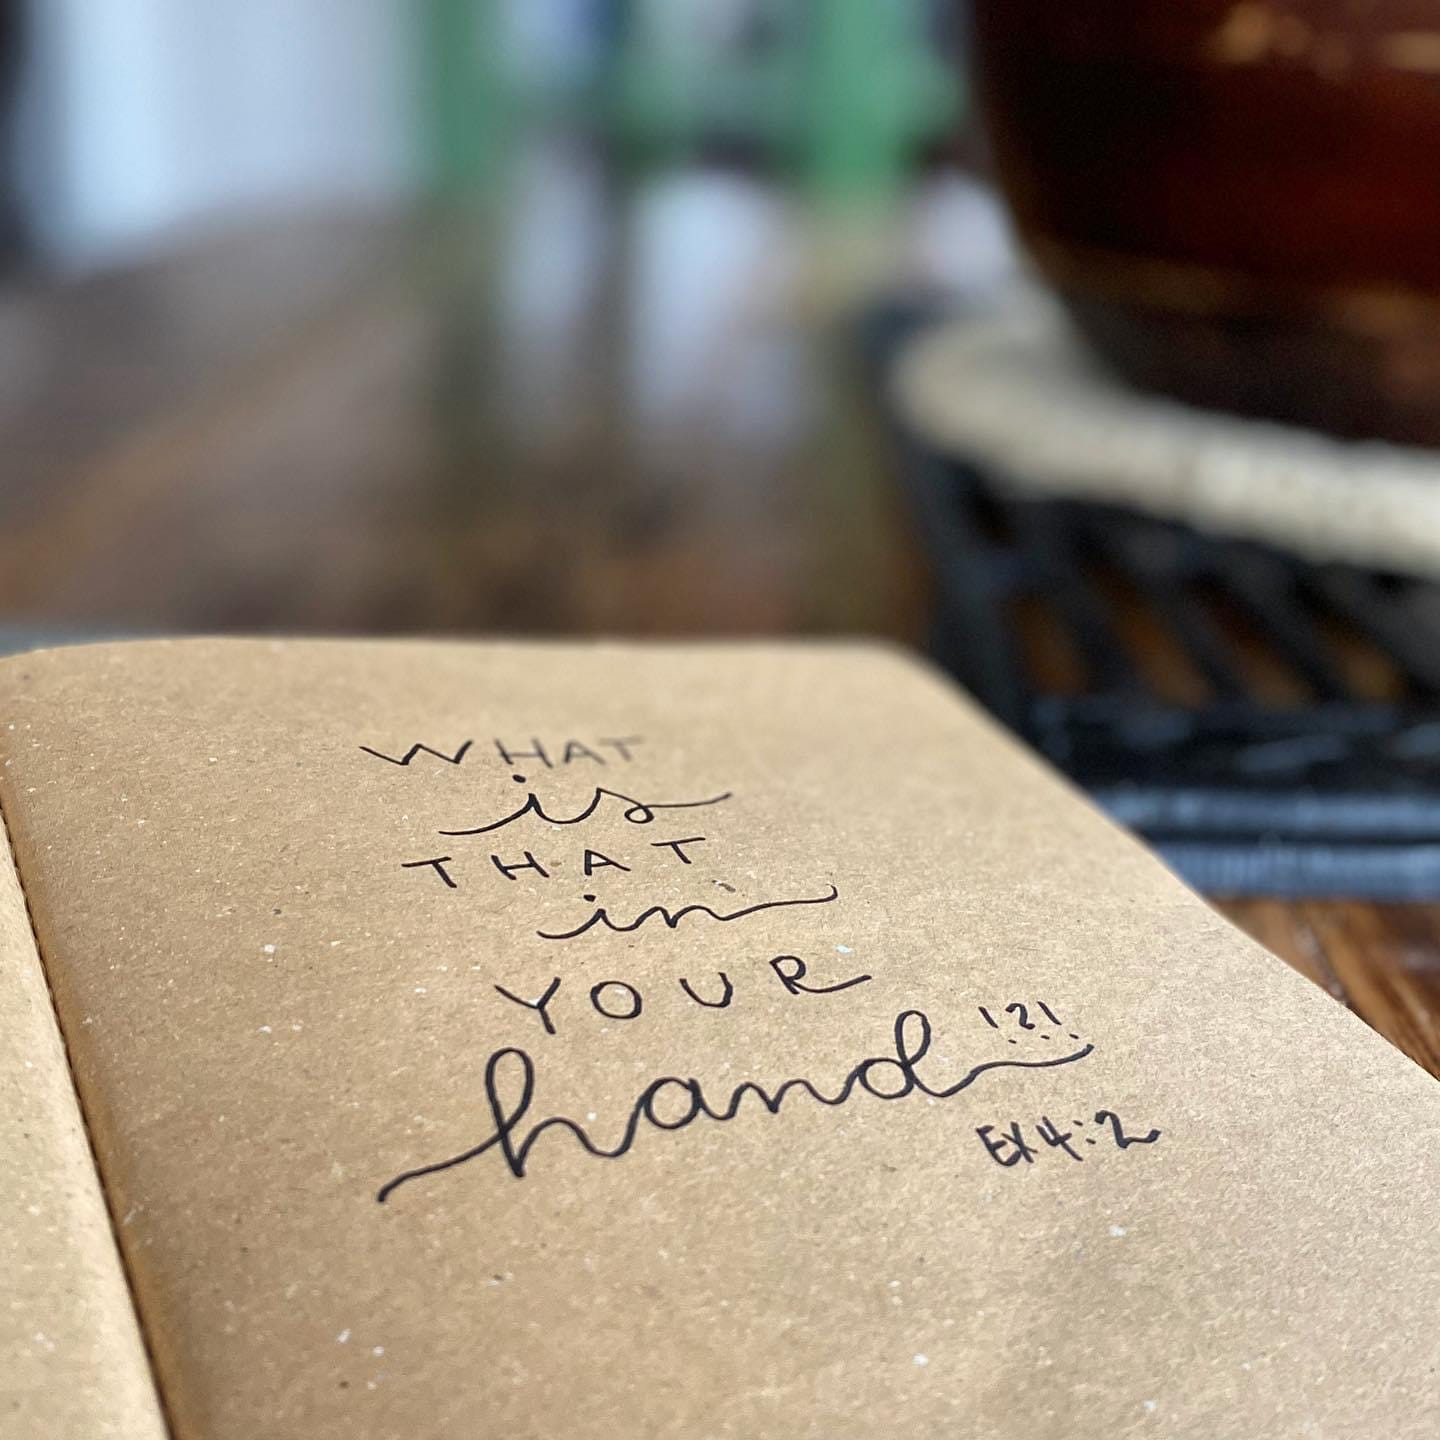 WHAT
is
THAT
in
YOUR
hand !?!
EX 4:2